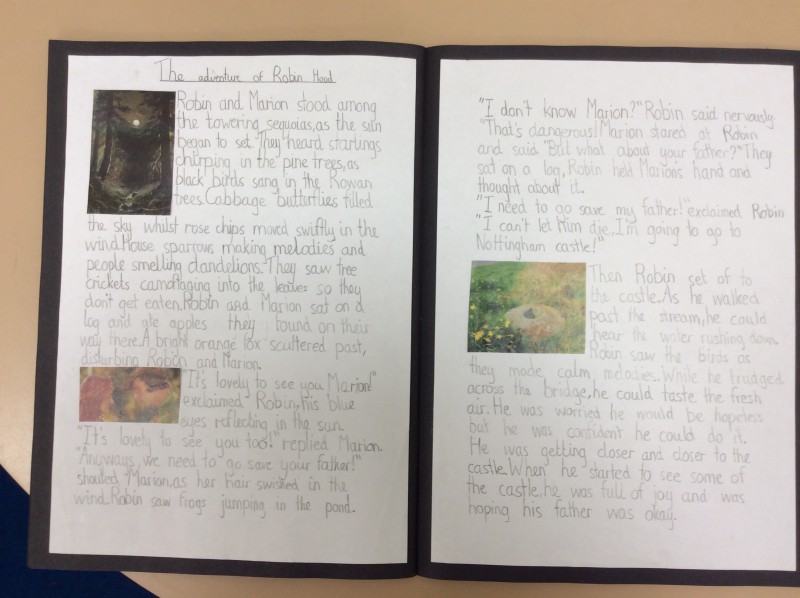 The adventure of Robin Hood
Robin and Marion stood among
the towering sequoias, as the sun
began to set. They heard starlings
chirping in the pine trees, as
black birds sang in the Rowan
trees. Cabbage butterflies filled
the sky whilst rose chips moved swiftly in the
wind. House sparrows making melodies and
people smelling dandelions. They saw tree
crickets camoflaging into the leaves so they
don't get eaten. Robin and Marion sat on a
log and ate apples they found on their
way there. A bright orange fox scuttered past,
disturbing Robin and Marion.
"It's lovely to see you Marion!"
exclaimed Robin, his blue
eyes reflecting in the sun.
"It's lovely to see you too!" replied Marion.
"Anyways, we need to go save your father!"
shouted Marion, as her hair swished in the
wind. Robin saw frogs jumping in the pond.
"I don't know Marion?" Robin said nervously
"That's dangerous! Marion stared at Robin
and said "But what about your father?" They
sat on a log, Robin held Marion's hand and
thought about it.
"I need to go save my father!" exclaimed Robin
"I can't let him die, I'm going to go to
Nottingham castle!"
Then Robin set of to
the castle. As he walked
past the stream, he could
hear the water rushing down.
Robin saw the birds as
they made calm melodies. While he trudged
across the bridge, he could taste the fresh
air. He was worried he would be hopeless
but he was confident he could do it.
He was getting closer and closer to the
castle. When he started to see some of
the castle, he was full of joy and was
hoping his father was okay.